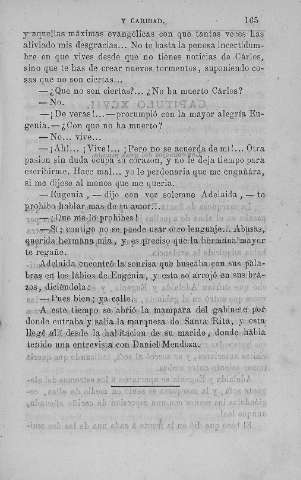 Y CARIDAD. 165
y aquellas máximas evangélicas con que tantas veces has
aliviado mis desgracias... No te basta la penosa incertidum-
bre en que vives desde que no tienes noticias de Cárlos,
sino que te has de crear nuevos tormentos, suponiendo co-
sas que no son ciertas...
—¿Que no son ciertas?... ¿No ha muerto Cárlos?
—No.
—¡De veras!...—prorumpió con la mayor alegría Eu-
genia.—¿Con que no ha muerto?
—No... vive...
—¡Ah!... ¡Vive!... ¡Pero no se acuerda de mí!... Otra
pasion sin duda ocupa su corazon, y no le deja tiempo para
escribirme. Hace mal... yo le perdonaria que me engañára,
si me dijese al menos que me queria.
—Eugenia,—dijo con voz solemne Adelaida,—te
prohibo hablar mas de su amor...
—¿Que me lo prohibes!
—Sí; contigo no se puede usar otro lenguaje. Abusas,
querida hermana mia, y es preciso que la hermana mayor
te regañe.
Adelaida encontró la sonrisa que buscaba con sus pala-
bras en los lábios de Eugenia, y esta se arrojó en sus bra-
zos, diciéndola:
—Pues bien; ya callo.
A este tiempo se abrió la mampara del gabinete por
donde entraba y salia la marquesa de Santa Rita, y esta
llegó allí desde la habitacion de su marido, donde habia
tenido una entrevista con Daniel Mendoza.